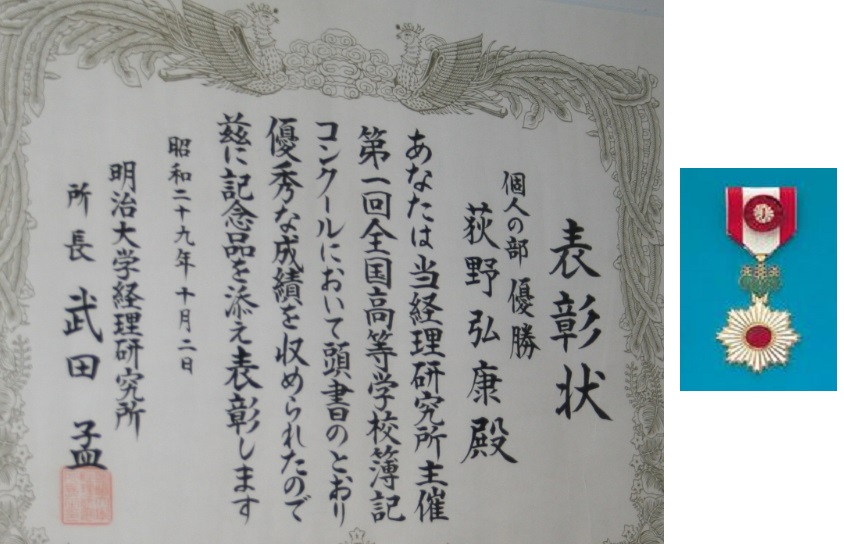 表彰状
個人の部 優勝
荻野弘康殿
あなたは当経理研究所主催
第一回全国高等学校簿記
コンクールにおいて頭書のとおり
優秀な成績を収められたので
茲に記念品を添え表彰します
昭和二十九年十月二日
明治大学経理研究所
所長 武田孟